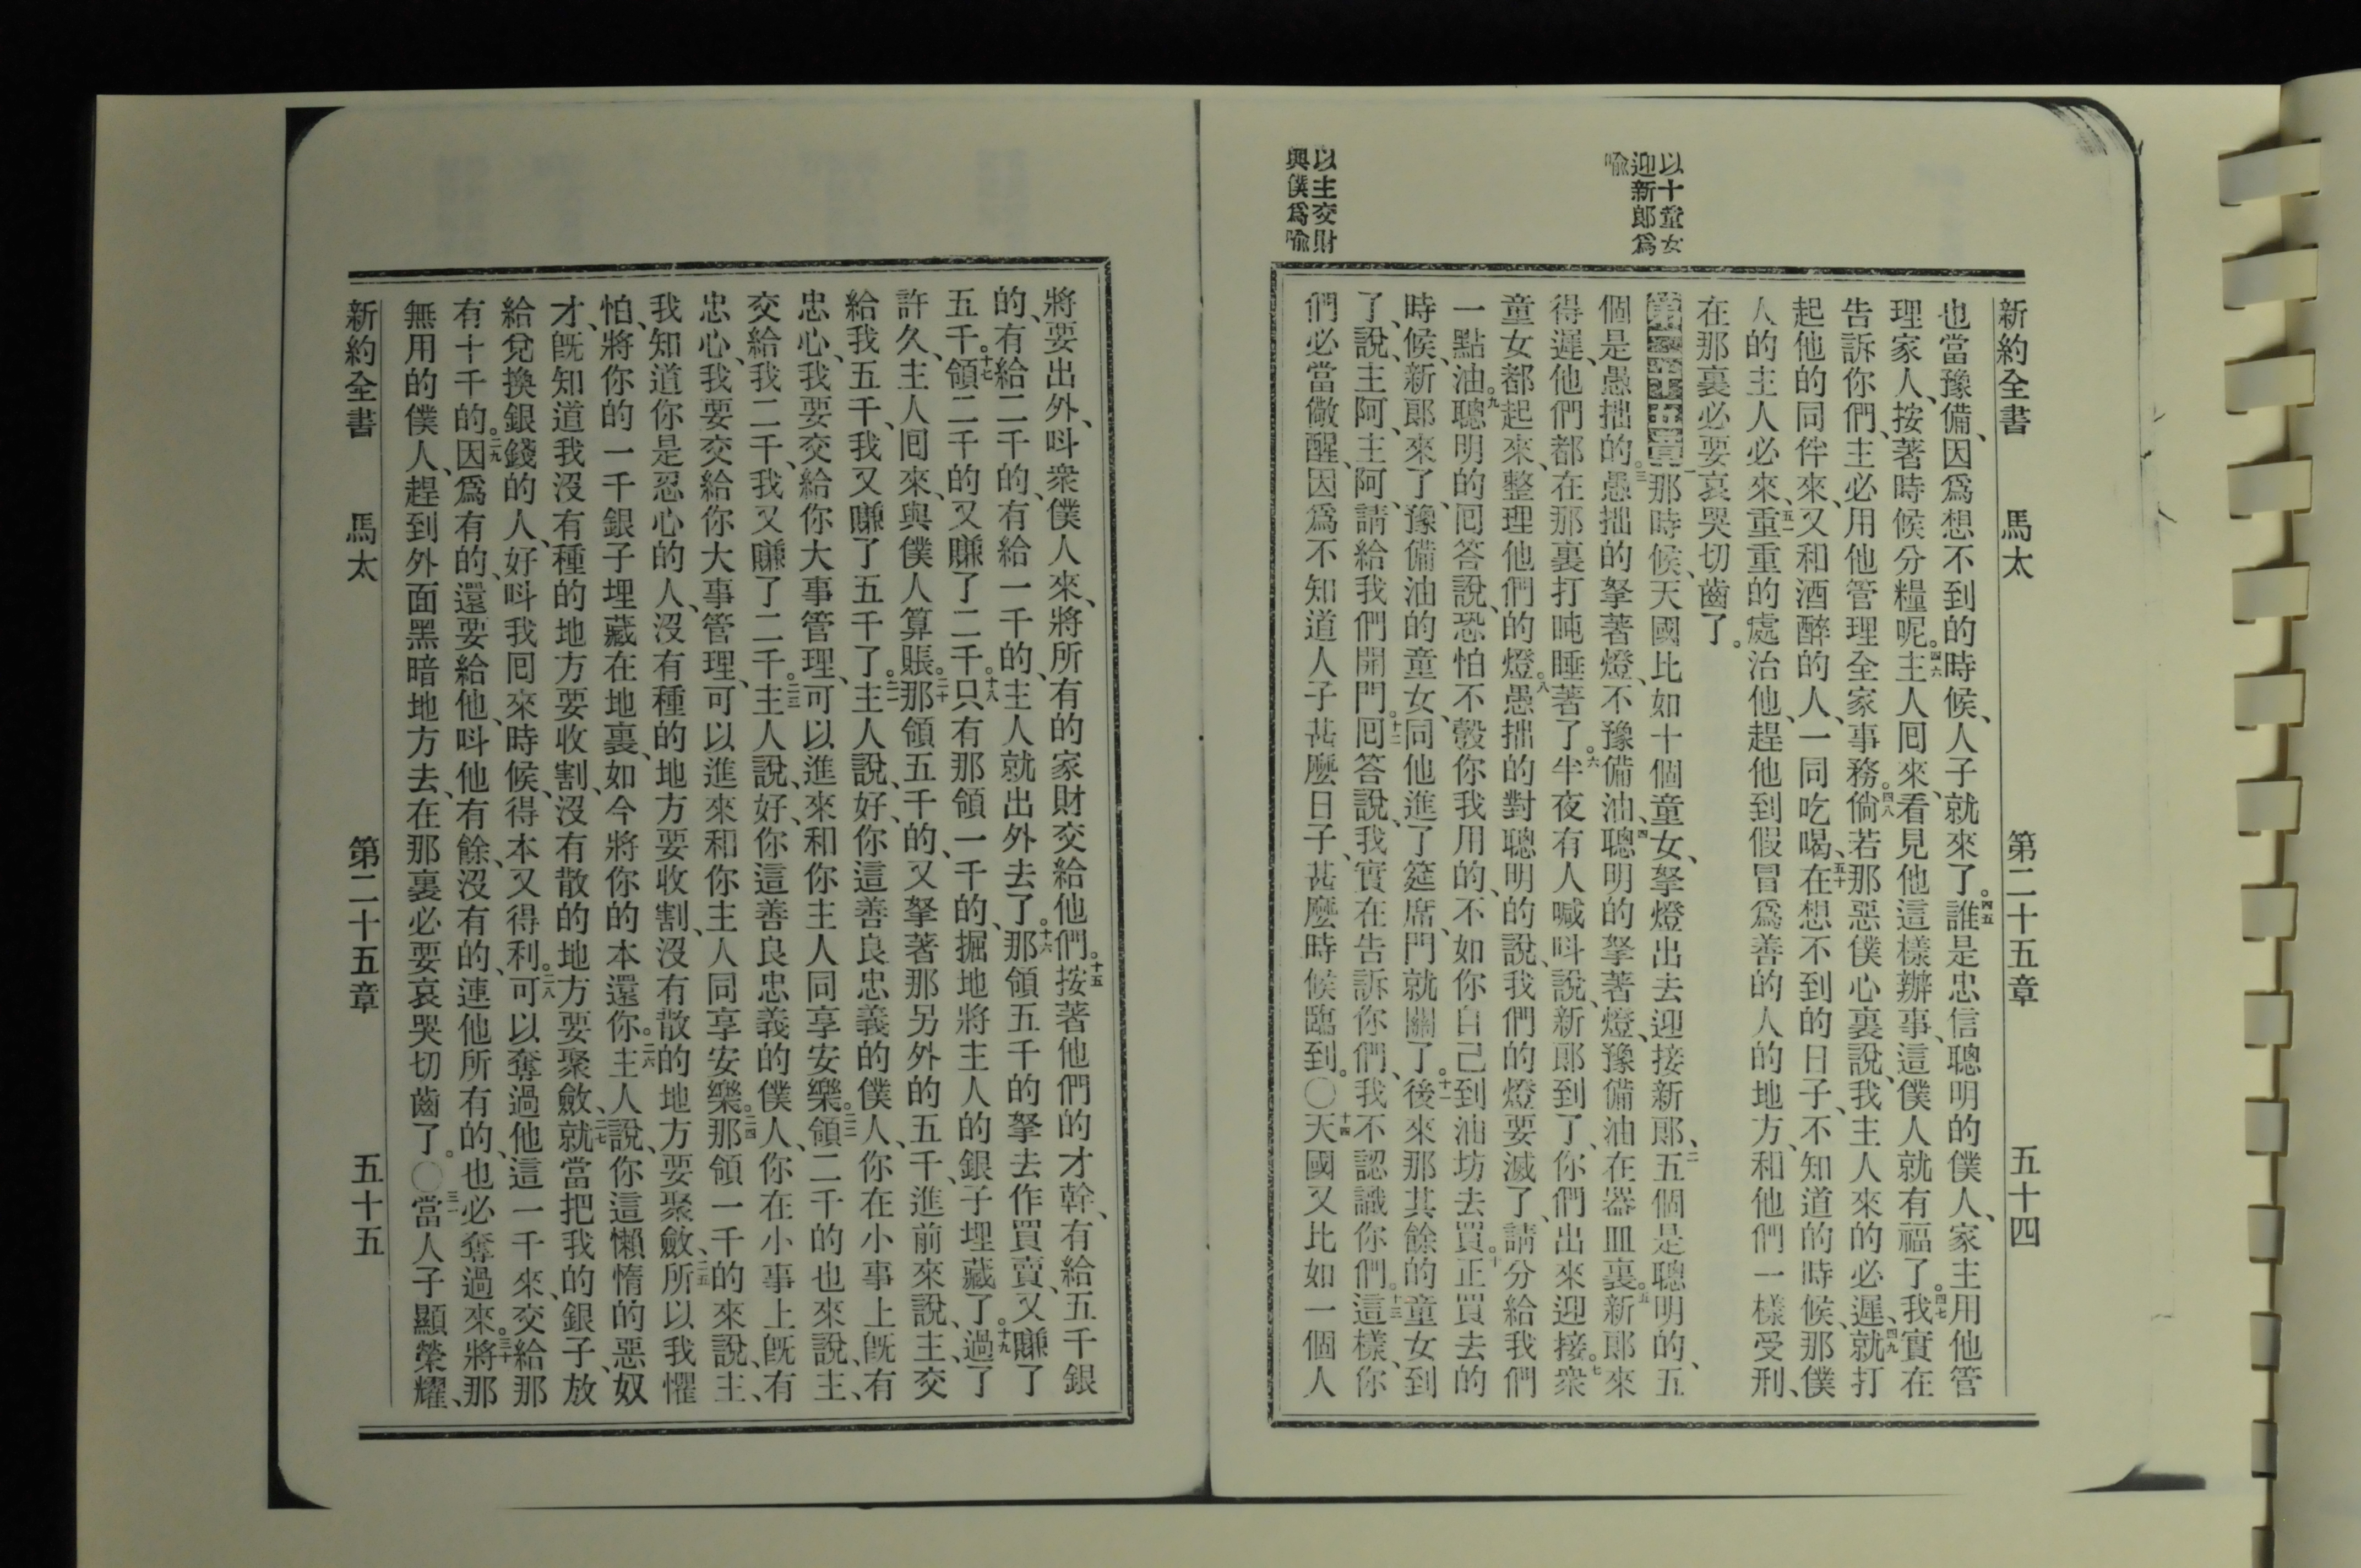 以十童女
迎新郎爲
喻
以主交財
與僕爲喻
新約全書 馬太 第二十五章 五十四
也當豫備、因爲想不到的時候、人子就來了。四五誰是忠信聰明的僕人、家主用他管
理家人、按著時候分糧呢。四六主人囘來、看見他這樣辦事、這僕人就有福了。四七我實在
告訴你們、主必用他管理全家事務。四八倘若那惡僕心裏說、我主人來的必遲、四九就打
起他的同伴來、又和酒醉的人、一同吃喝、五十在想不到的日子、不知道的時候、那僕
人的主人必來、五一重重的處治他、趕他到假冒爲善的人的地方、和他們一樣受刑、
在那裏必要哀哭切齒了。
第二十五章一那時候、天國比如十個童女、拏燈出去迎接新郎、二五個是聰明的、五
個是愚拙的。三愚拙的拏著燈、不豫備油、四聰明的拏著燈、豫備油在器皿裏。五新郎來
得遲、他們都在那裏打盹睡著了。六半夜有人喊呌說、新郎到了、你們出來迎接。七衆
童女都起來、整理他們的燈。八愚拙的對聰明的說、我們的燈要滅了、請分給我們
一點油。九聰明的囘答說、恐怕不彀你我用的、不如你自己到油坊去買。十正買去的
時候、新郎來了、豫備油的童女、同他進了筵席、門就關了。十一後來那其餘的童女到
了、說、主阿、主阿、請給我們開門。十二囘答說、我實在告訴你們、我不認識你們。十三這樣、你
們必當儆醒、因爲不知道人子甚麼日子、甚麼時候臨到。〇十四天國又比如一個人
將要出外、呌衆僕人來、將所有的家財交給他們。十五按著他們的才幹、有給五千銀
的、有給二千的、有給一千的、主人就出外去了。十六那領五千的拏去作買賣、又賺了
五千。十七領二千的又賺了二千。十八只有那領一千的、掘地將主人的銀子埋藏了。十九過了
許久、主人囘來、與僕人算賬。二十那領五千的、又拏著那另外的五千、進前來說、主、交
給我五千、我又賺了五千了。二一主人說、好、你這善良忠義的僕人、你在小事上既有
忠心、我要交給你大事管理、可以進來和你主人同享安樂。二二領二千的也來說、主、
交給我二千、我又賺了二千。二三主人說、好、你這善良忠義的僕人、你在小事上既有
忠心、我要交給你大事管理、可以進來和你主人同享安樂。二四那領一千的來說、主、
我知道你是忍心的人、沒有種的地方要收割、沒有散的地方要聚斂、二五所以我懼
怕、將你的一千銀子埋藏在地裏、如今將你的本還你。二六主人說、你這懶惰的惡奴
才、既知道我沒有種的地方要收割、沒有散的地方要聚斂、二七就當把我的銀子、放
給兌換銀錢的人、好呌我囘來時候、得本又得利。二八可以奪過他這一千來、交給那
有十千的。二九因爲有的、還要給他、呌他有餘、沒有的、連他所有的、也必奪過來。三十將那
無用的僕人、趕到外面黑暗地方去、在那裏必要哀哭切齒了。〇三一當人子顯榮耀、
新約全書 馬太 第二十五章 五十五